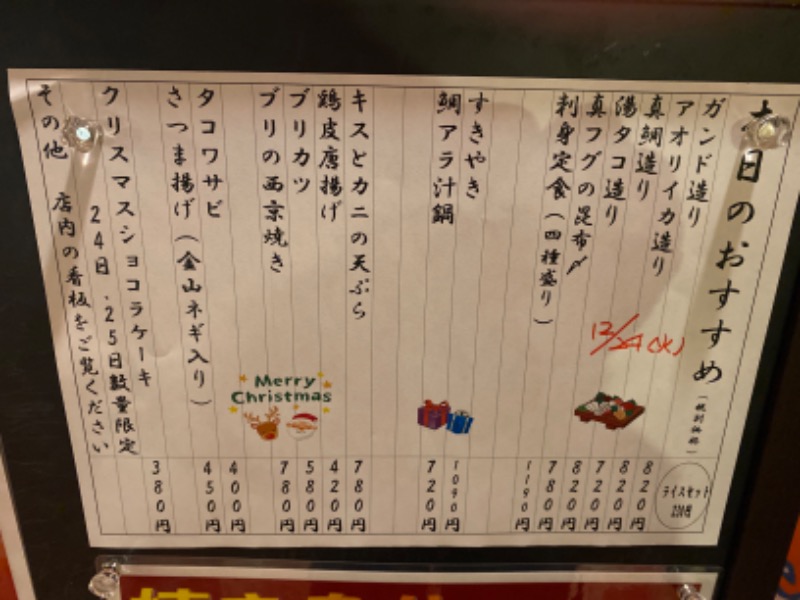 本日のおすすめ(税別価格)
ガンド造り 820円
アオリイカ造り 820円
真鯛造り 720円
湯タコ造り 820円
真フグの昆布〆 780円
刺身定食(四種盛り) 1190円
すきやき 1090円
鯛アラ汁鍋 720円
キスとカニの天ぷら 780円
鶏皮唐揚げ 420円
ブリカツ 580円
ブリの西京焼き 780円
タコワサビ 400円
さつま揚げ(金山ネギ入り) 450円
クリスマスショコラケーキ 380円
24日.25日数量限定
その他 店内の看板をご覧ください
12/24(火)
ライスセット
220円
Merry
Christmas